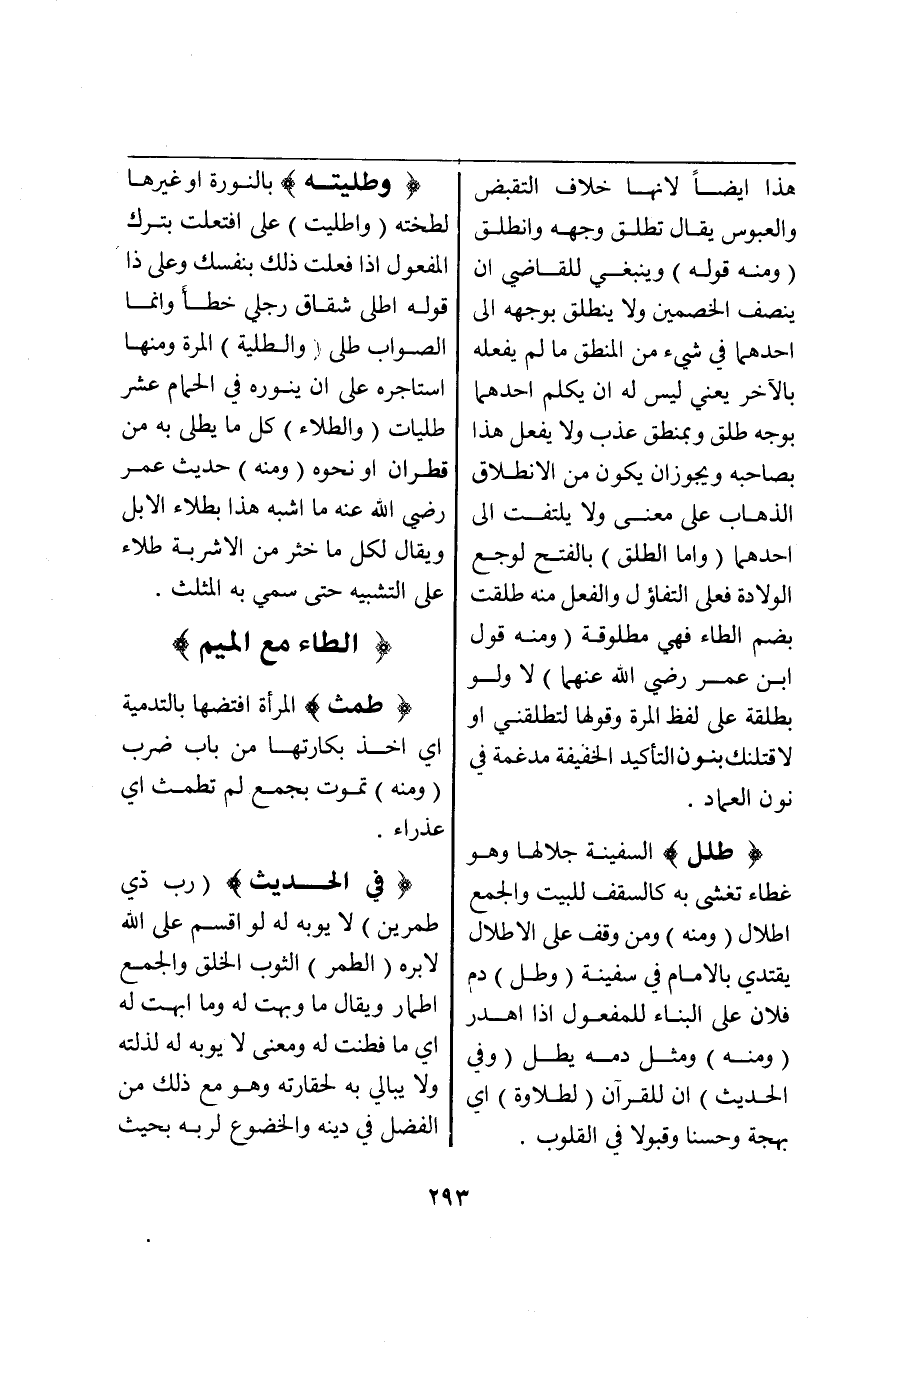 هذا ايضاً لانها خلاف التقبض
والعبوس يقال تطلق وجهه وانطلق
( ومنه قوله ) وينبغي للقاضي ان
ينصف الخصمين ولا ينطلق بوجهه الى
احدهما في شيء من المنطق ما لم يفعله
بالآخر يعني ليس له ان يكلم احدهما
بوجه طلق وبمنطق عذب ولا يفعل هذا
بصاحبه ويجوزان يكون من الانطلاق
الذهاب على معنى ولا يلتفت الى
احدهما ( واما الطلق ) بالفتح لوجع
الولادة فعلى التفاؤل والفعل منه طلقت
بضم الطاء فهي مطلوقة ( ومنه قول
ابن عمر رضي الله عنهما ) لا ولو
بطلقة على لفظ المرة وقولها لتطلقني او
لاقتلنك بنون التأكيد الخفيفة مدغمة في
نون العماد .
﴿ طلل ﴾ السفينة جلالها وهو
غطاء تغشى به كالسقف للبيت والجمع
اطلال ( ومنه ) ومن وقف على الاطلال
يقتدي بالامام في سفينة ( وطل ) دم
فلان على البناء للمفعول اذا اهدر
( ومنه ) ومثل دمه يطل ( وفي
الحديث ) ان للقرآن ( لطلاوة ) اي
بهجة وحسنا وقبولا في القلوب .
﴿ وطليته ﴾ بالنورة او غيرها
لطخته ( واطليت ) على افتعلت بترك
المفعول اذا فعلت ذلك بنفسك وعلى ذا
قوله اطلى شقاق رجلي خطأ وانما
الصواب طلى ( والطلية ) المرة ومنها
استاجره على ان ينوره في الحمام عشر
طليات ( والطلاء ) كل ما يطلى به من
قطران او نحوه ( ومنه ) حديث عمر
رضي الله عنه ما اشبه هذا بطلاء الابل
ويقال لكل ما خثر من الاشربة طلاء
على التشبيه حتى سمي به المثلث .
﴿ الطاء مع الميم ﴾
﴿ طمث ﴾ المرأة افتضها بالتدمية
اي اخذ بكارتها من باب ضرب
( ومنه ) تموت بجمع لم تطمث اي
عذراء .
﴿ في الحديث ﴾ ( رب ذي
طمرين ) لا يوبه له لو اقسم على الله
لابره ( الطمر ) الثوب الخلق والجمع
اطمار ويقال ما وبهت له وما ابهت له
اي ما فطنت له ومعنى لا يوبه له لذلته
ولا يبالى به لحقارته وهو مع ذلك من
الفضل في دينه والخضوع لربه بحيث
٢٩٣